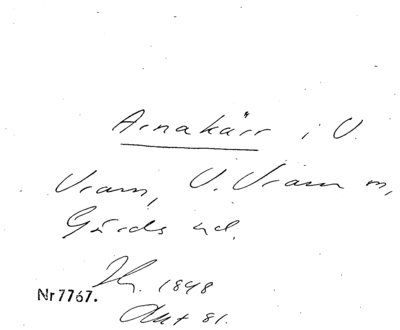 Arnakärr i V.
Vram, V. Vram m,
Gärds hd.
1848
Nr 7767.
Akt 81.